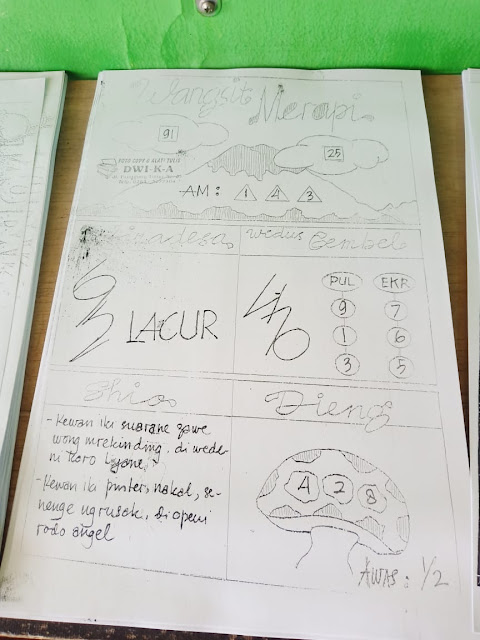 Wangsit Merapi
91
25
FOTO COPY & ALAT TULIS
DWI-K-A
AM: 1 4 3
wedus Gembel
LACUR
PUL EKR
9 7
1 6
3 5
Shio
Dieng
- Kewan iki suarane gawe
wong mrekinding, diwede-
ni karo liyane
- Kewan iki pinter, nakal, se-
nenge ngrusak, diopeni
rodo angel
4 2 8
AWAS : 1/2